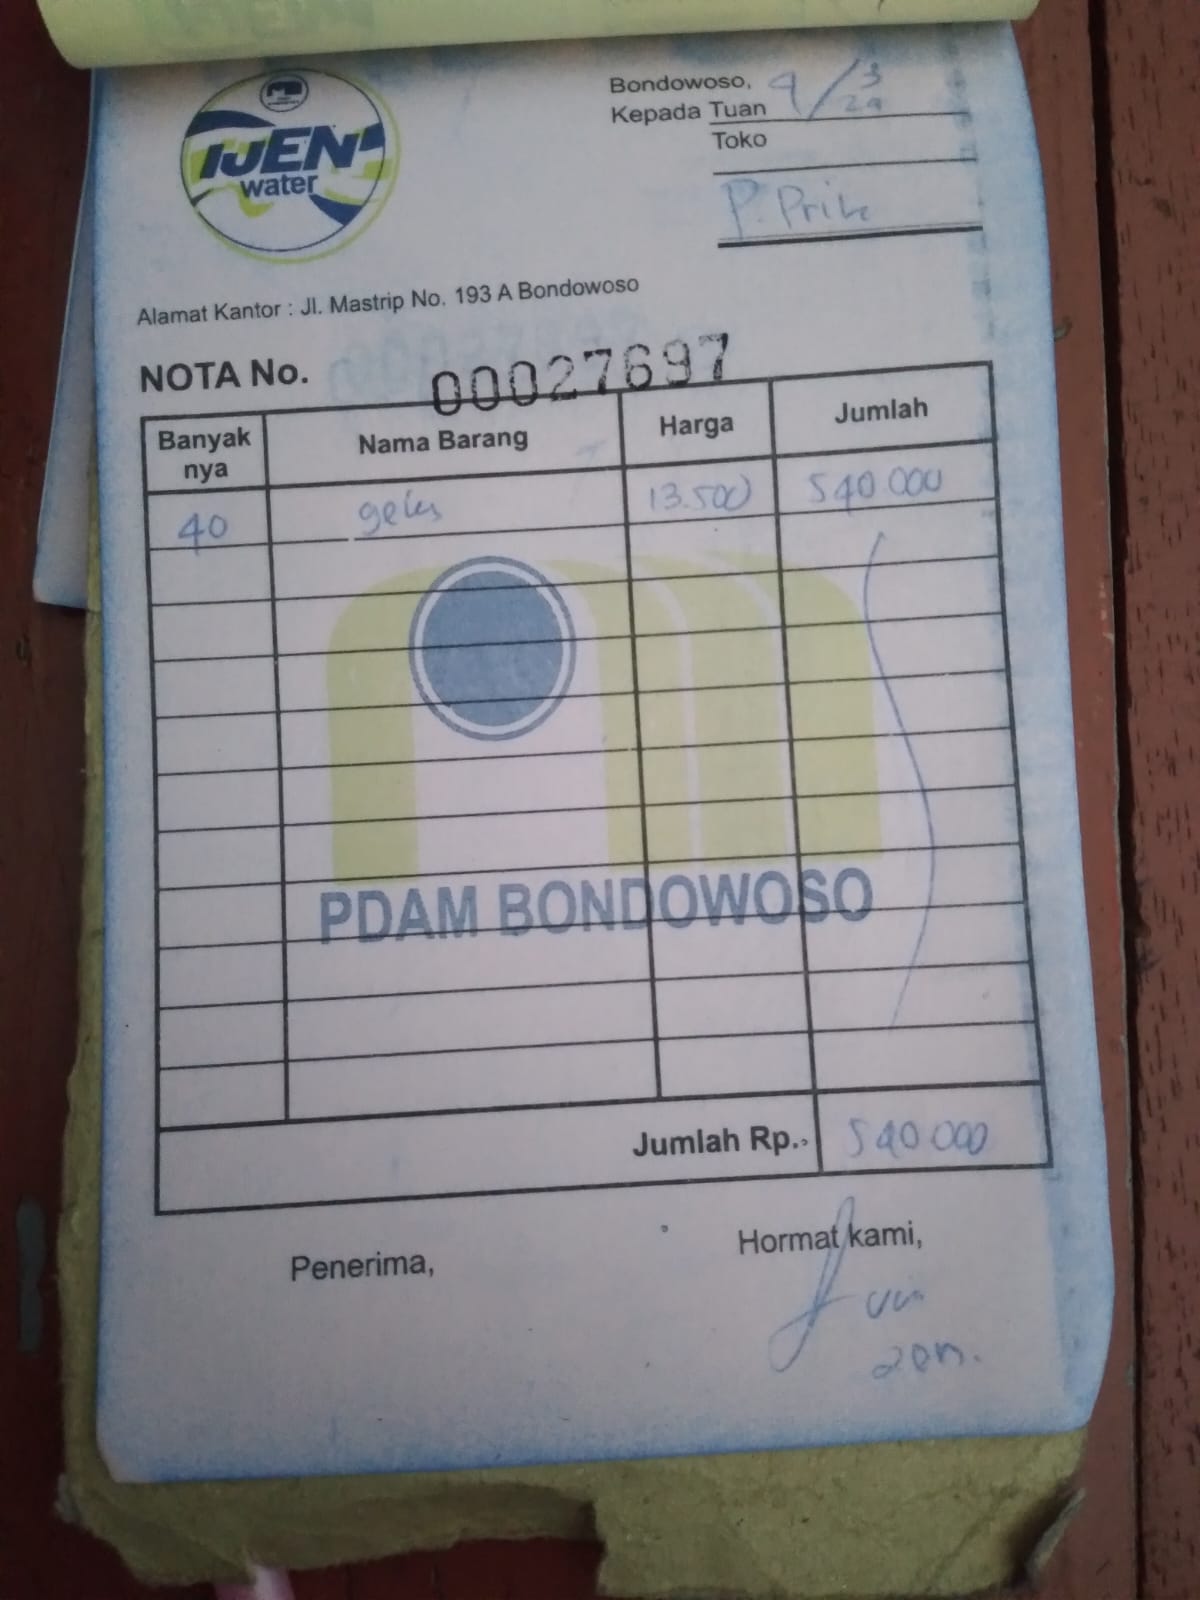 IJEN
water
Bondowoso, 9/3
Kepada Tuan
Toko
P. Prik
Alamat Kantor : Jl. Mastrip No. 193 A Bondowoso
NOTA No. 00027697
Banyak nya Nama Barang Harga Jumlah
40 gelas 13.500 540 000
PDAM BONDOWOSO
Jumlah Rp. 540 000
Penerima, Hormat kami,